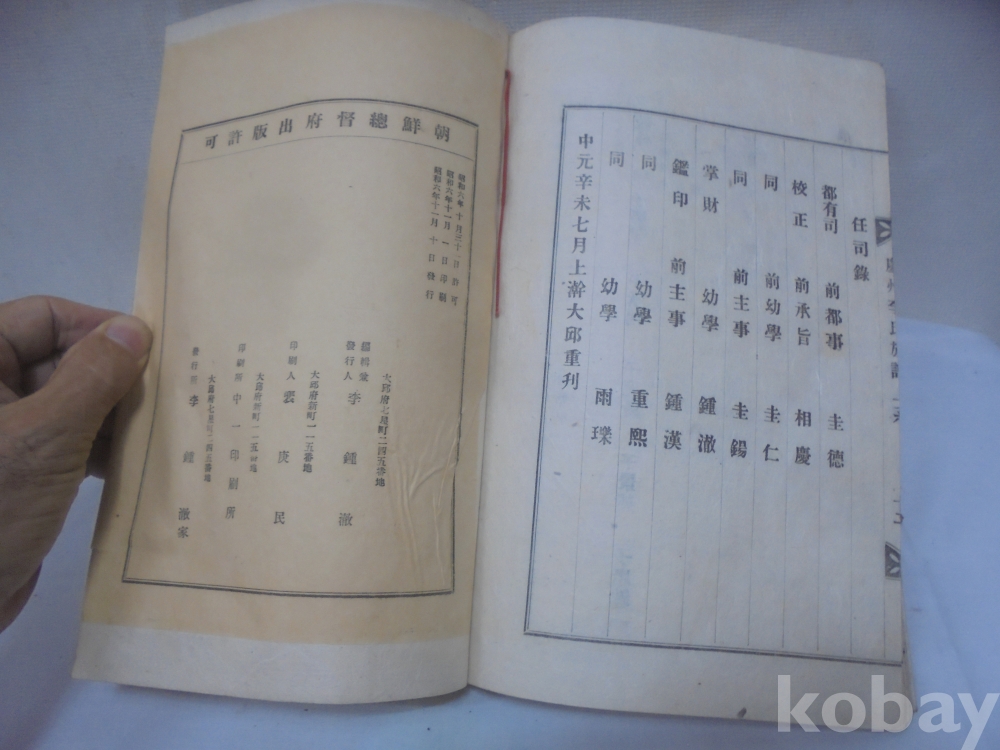 任司錄
都有司 前都事 圭德
校正 前承旨 相慶
同 前幼學 圭仁
同 前主事 圭錫
掌財 幼學 鍾澈
鑑印 前主事 鍾漢
同 幼學 重熙
同 幼學 雨瑮
中元辛未七月上澣大邱重刋
朝鮮總督府出版許可
昭和六年十月三十一日許可
昭和六年十一月一日印刷
昭和六年十一月十日發行
大邱府七星町二四五番地
編輯兼發行人 李鍾澈
大邱府新町一一五番地
印刷人 裵庚民
大邱府新町一一五番地
印刷所 中一印刷所
大邱府七星町二四五番地
發行所 李鍾澈家
kobay